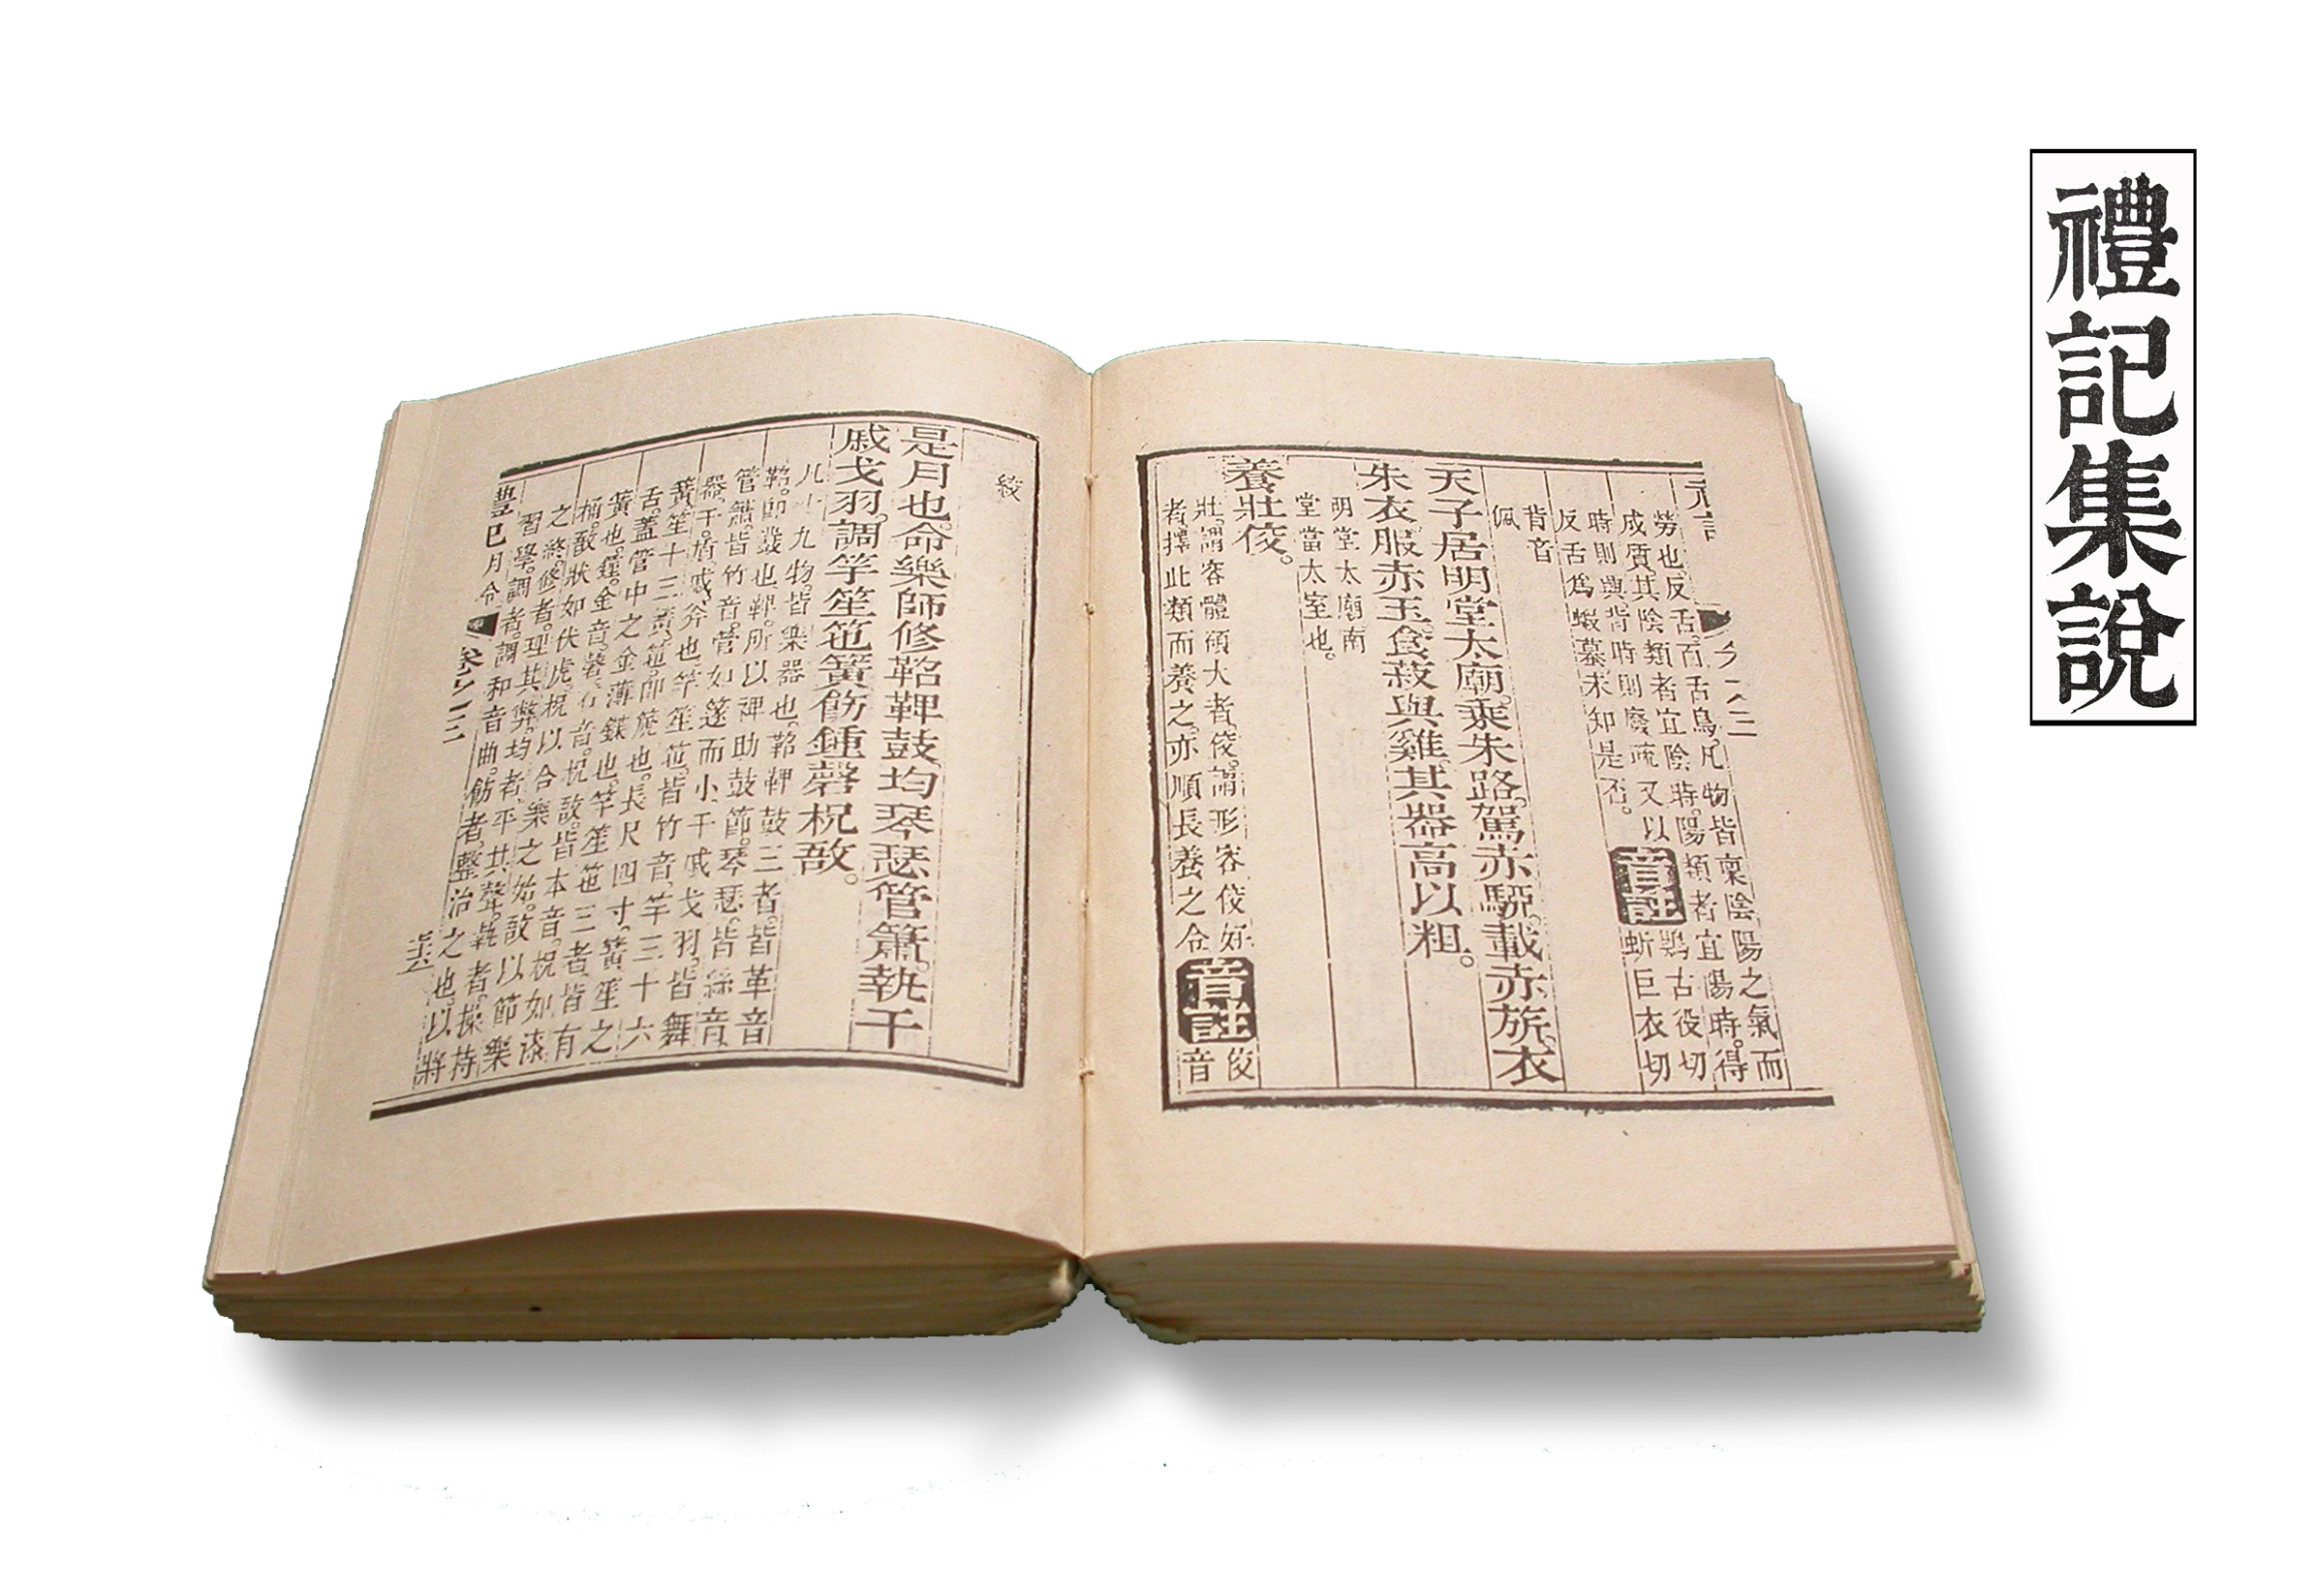 禮記集說
勞也。反舌。百舌鳥。凡物皆稟陰陽之氣而
成質。其陰類者宜陰時。陽類者宜陽時。得
時則興。背時則廢。疏又以
反舌爲蝦蟇。未知是否。
音註
鵙古役切
蚚巨衣切
背音
佩
天子居明堂太廟。乘朱路。駕赤騮。載赤旂。衣
朱衣。服赤玉。食菽與雞。其器高以粗。
明堂太廟。南
堂當太室也。
養壯佼。
壯。謂容體碩大者。佼。謂形容佼好
者。擇此類而養之。亦順長養之令
音註
佼
音
絞
是月也。命樂師修鞀鞞鼓。均琴瑟管簫。執干
戚戈羽。調竽笙竾簧。飭鍾磬柷敔。
凡十九物。皆樂器也。鞀鞞鼓三者。皆革音
鞀。卽鼗也。鞞。所以裨助鼓節。琴瑟。皆絲音。
管簫。皆竹音。管如篴而小。干戚戈羽。皆舞
器。干。盾。戚。斧也。竽笙竾。皆竹音。竽三十六
簧。笙十三簧。竾。卽篪也。長尺四寸。簧。笙之
舌。蓋管中之金薄鍱也。竽笙竾三者。皆有
簧也。鐘。金音。磬。石音。柷敔。皆木音。柷如漆
桶。敔狀如伏虎。柷以合樂之始。敔以節樂
之終。修者。理其弊。均者。平其聲。執者。操持
習學。調者。調和音曲。飭者。整治之也。以將
月令
卷之三